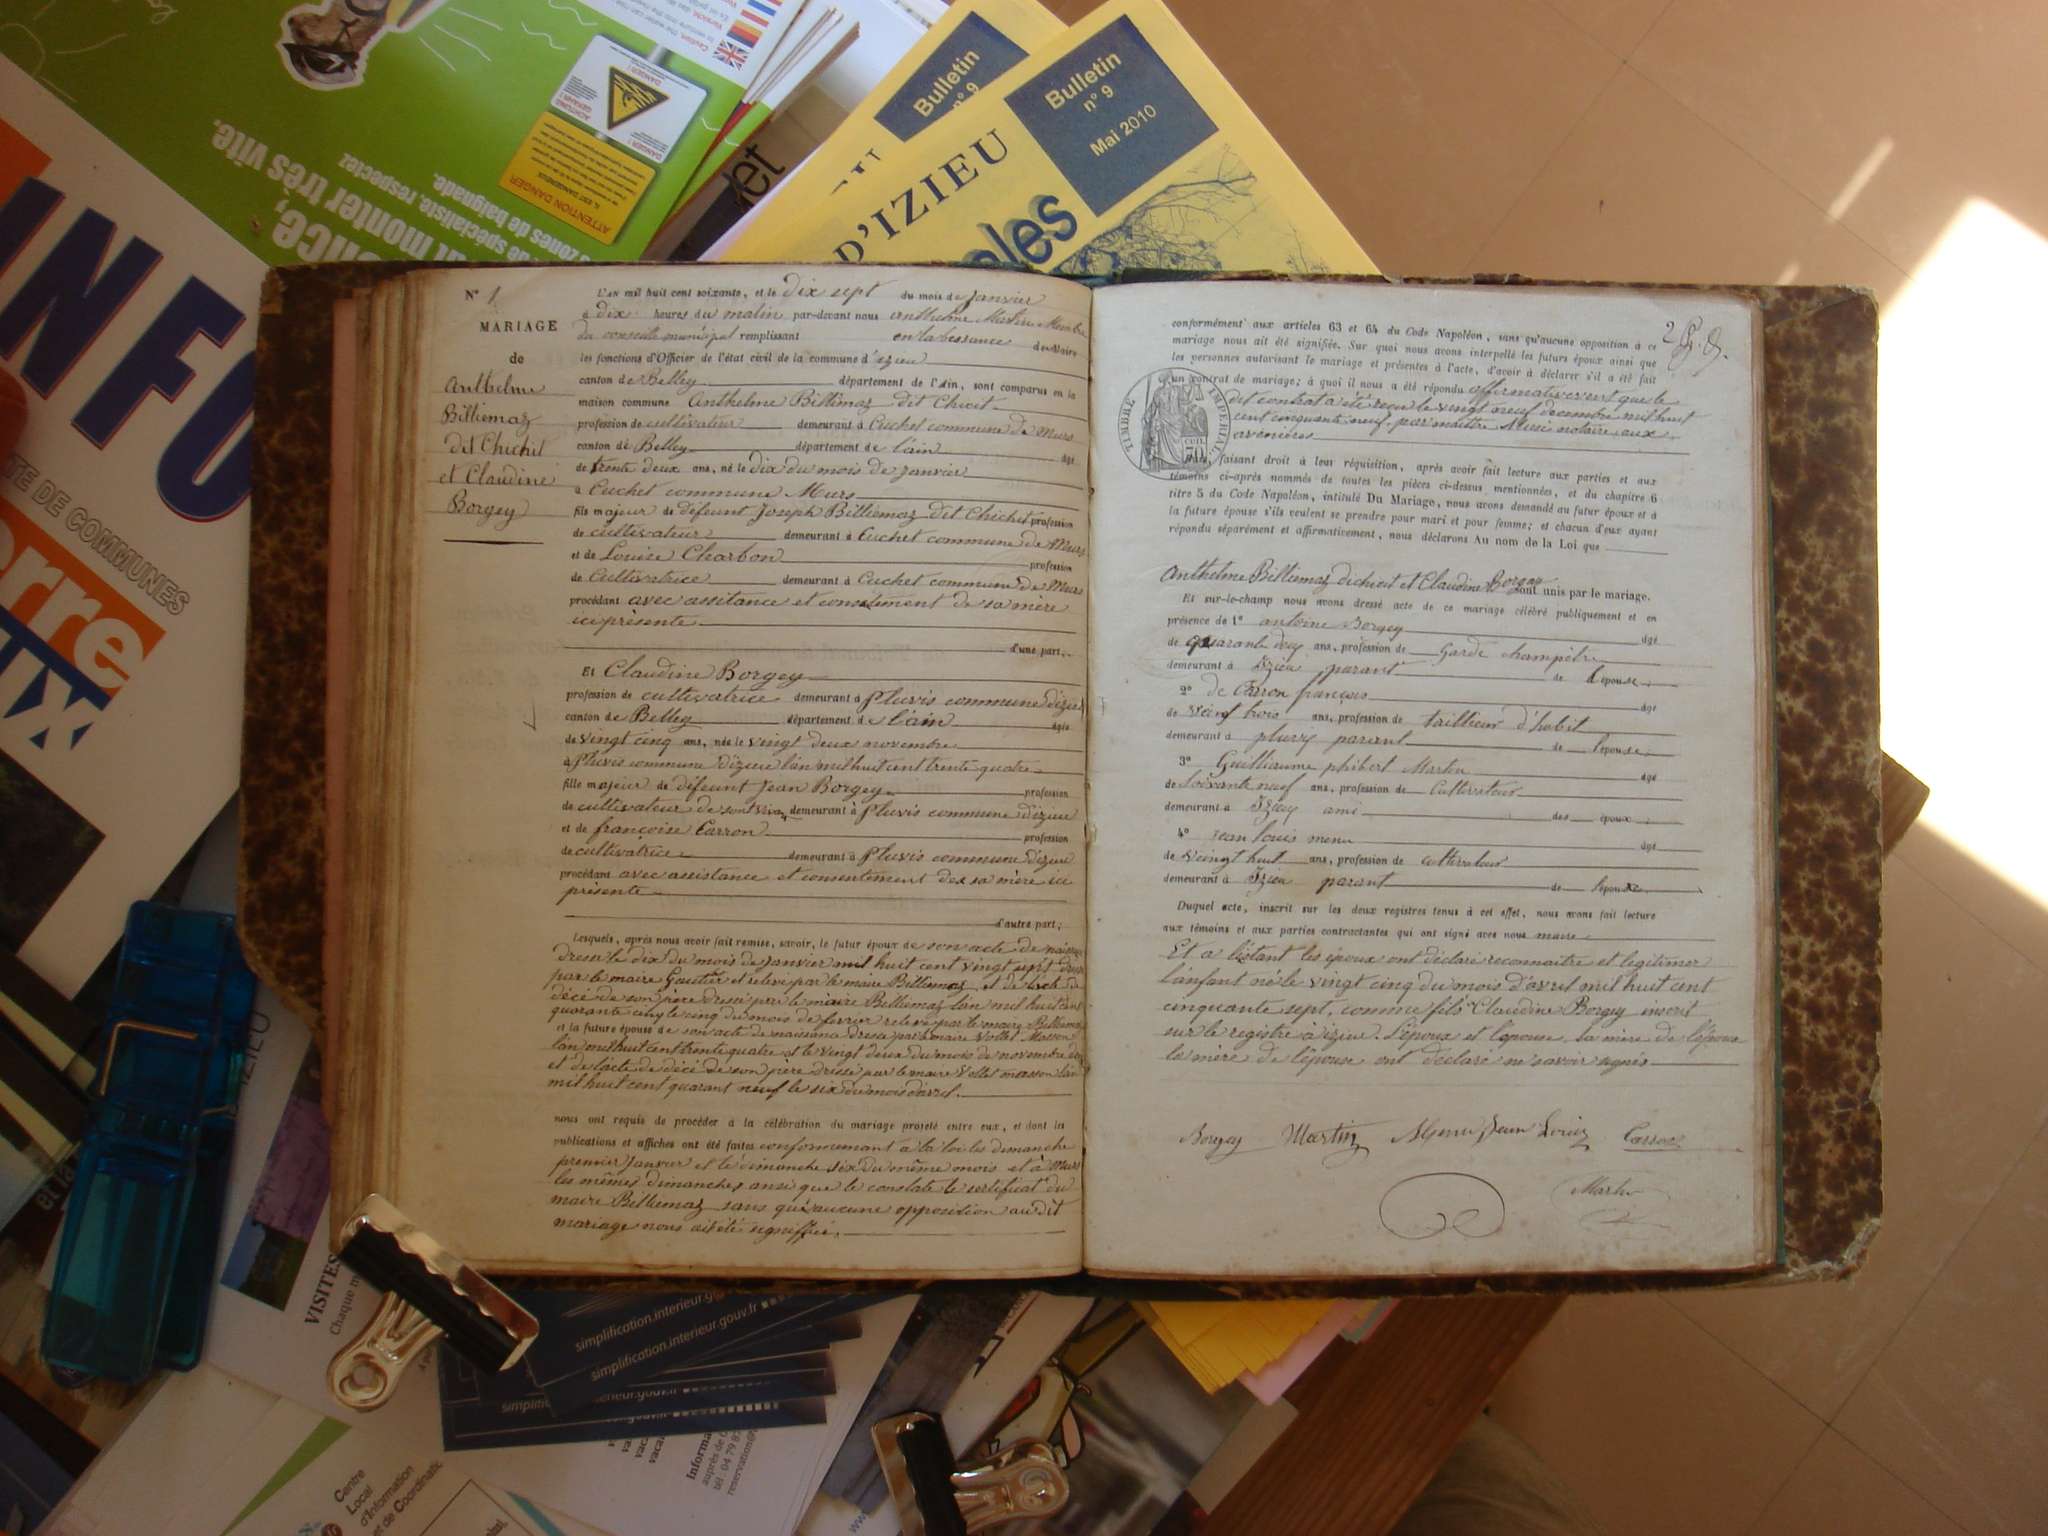 Bulletin
n° 9
Bulletin
n° 9
Mai 2010
D'IZIEU
INFO
ATTENTION DANGER
DANGER!
zones de baignade.
de spécialiste. respecter
monter très vite.
TE DE COMMUNES
erre
UX
N° 1
MARIAGE
de
Anthelme
Billiemaz
dit Chichit
et Claudine
Borgey
L'AN mil huit cent soixante, et le dix sept du mois de Janvier
à dix heures du matin par-devant nous Anthelme Martin Membre
du conseile municipal remplissant en la bessance du Maire
les fonctions d'Officier de l'état civil de la commune d'izieu
canton de Belley département de l'Ain, sont comparus en la
maison commune Anthelme Billimaz dit Chicit
profession de cultivateur demeurant à Cuchet commune de Murs
canton de Belley département de l'ain âgé
de trente deux ans, né le dix du mois de janvier
à Cuchet commune Murs
fils majeur de défeunt Joseph Billiemaz dit Chichit profession
de cultivateur demeurant à Cuchet commune de Murs
et de Louise Charbon profession
de Cultivatrice demeurant à Cuchet commune de Murs
procédant avec assitance et consitement de sa mère
ici présente
d'une part;
Et Claudine Borgey
profession de cultivatrice demeurant à Pluvis commune d'izieu
canton de Belley département de l'ain âgée
de vingt cinq ans, née le vingt deux novembre
à Pluvis commune d'izieu l'an mil huit cent trente quatre
fille majeur de défeunt Jean Borgey profession
de cultivateur de sont vivan demeurant à Pluvis commune d'izieu
et de françoise Carron profession
de cultivatrice demeurant à Pluvis commune d'izieu
procédant avec assistance et consentement de sa mère ici
présente
d'autre part;
Lesquels, après nous avoir fait remise, savoir, le futur époux de son acte de naissance
dressé le dix du mois de janvier mil huit cent vingt sept
par le maire Gautier et relevé par le maire Billiemaz et de l'acte de
décé de son père dressé par le maire Billiemaz l'an mil huit cent
quarante cinq le cinq du mois de ferrier relevé par le maire Billiemaz
et la future épouse de son acte de naissance dressé par le maire Vollet Masson
l'an mil huit cent trente quatre et le vingt deux du mois de novembre
et de l'acte de décé de son père dressé par le maire Vollet masson l'an
mil huit cent quarant neuf le six du mois d'avril.
nous ont requis de procéder à la célébration du mariage projeté entre eux, et dont les
publications et affiches ont été faites conformemant à la loi les dimanche
premier Janvier et le dimanche six du même mois et à Murs
les mêmes dimanches ansi que le constate le sertificat du
maire Billiemaz sans qu'aucune opposition audit
mariage nous ait été signiffiée.
2
conformément aux articles 63 et 64 du Code Napoléon, sans qu'aucune opposition à ce
mariage nous ait été signifiée. Sur quoi nous avons interpellé les futurs époux ainsi que
les personnes autorisant le mariage et présentes à l'acte, d'avoir à déclarer s'il a été fait
un contrat de mariage; à quoi il nous a été répondu affirmativement que le
dit contrat a été reçu le vingt neuf decembre mil huit
cent cinquante neuf par maître notaire aux
avenières
TIMBRE IMPERIAL
CEN. 70
faisant droit à leur réquisition, après avoir fait lecture aux parties et aux
témoins ci-après nommés de toutes les pièces ci-dessus mentionnées, et du chapitre 6
titre 5 du Code Napoléon, intitulé Du Mariage, nous avons demandé au futur époux et à
la future épouse s'ils veulent se prendre pour mari et pour femme; et chacun d'eux ayant
répondu séparément et affirmativement, nous déclarons Au nom de la Loi que
Anthelme Billiemaz dichicit et Claudine Borgey sont unis par le mariage.
Et sur-le-champ nous avons dressé acte de ce mariage célébré publiquement et en
présence de 1° antoine Borgey âgé
de quarante deux ans, profession de Garde champêtre
demeurant à Izieu parant de l'épouse;
2° de Carron françois âgé
de veint trois ans, profession de taillieur d'habit
demeurant à pluvy parant de l'épouse;
3° Guilliaume phibert Martin âgé
de soixante neuf ans, profession de Cultivateur
demeurant à Izieu ami des époux;
4° jean louis menu âgé
de veingt huit ans, profession de cultivateur
demeurant à Izieu parant de l'épouse
Duquel acte, inscrit sur les deux registres tenus à cet effet, nous avons fait lecture
aux témoins et aux parties contractantes qui ont signé avec nous maire
Et a l'istant les époux ont déclaré reconnaitre et legitimer
l'enfant né le vingt cinq du mois d'avril mil huit cent
cinquante sept, comme fils Claudine Borgey inscrit
sur le registre à izieu. L'époux et l'épouse, la mère de l'époux
la mère de l'épouse ont déclaré ne savoir signés
Borgey Martin Menu Jean Louis Carron
Martin
VISITES
Chaque
simplification.interieur.g
simplification.interieur.gouv.fr
erieur.gouv.fr
Centre
Local
d'Information
et de Coordinatic